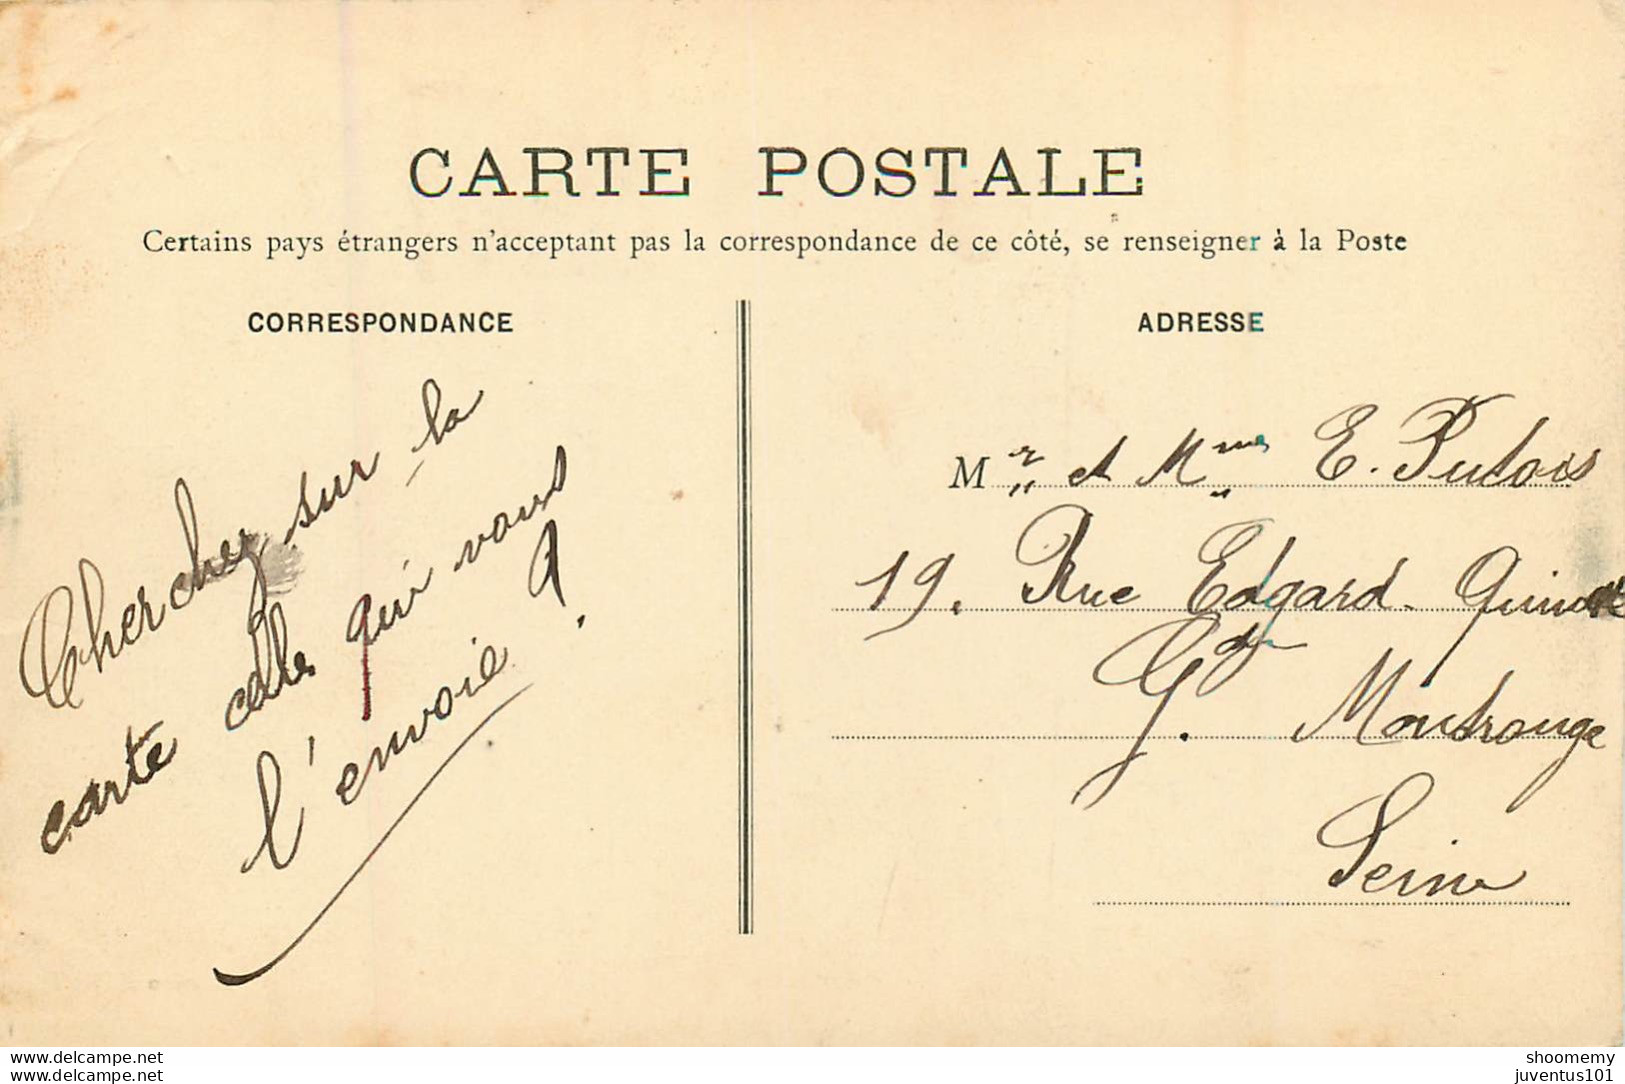 CARTE POSTALE
Certains pays étrangers n'acceptant pas la correspondance de ce côté, se renseigner à la Poste
CORRESPONDANCE
Cherchez sur la
carte celle qui vous
l'envoie ?
ADRESSE
Mr et Mme E. Putois
19. Rue Edgard Quinet
Gd G. Montrouge
Seine
www.delcampe.net
www.delcampe.net
shoomemy
juventus101